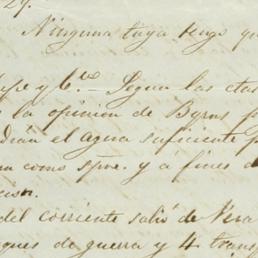 29.
Ninguna tuya tengo qu
y Cª.— Segun las
la opinion de Byrns p
dian el agua suficiente p
como spre. y á fines d
cion.
del corriente salió de Vera
ques de guerra y 4 transp